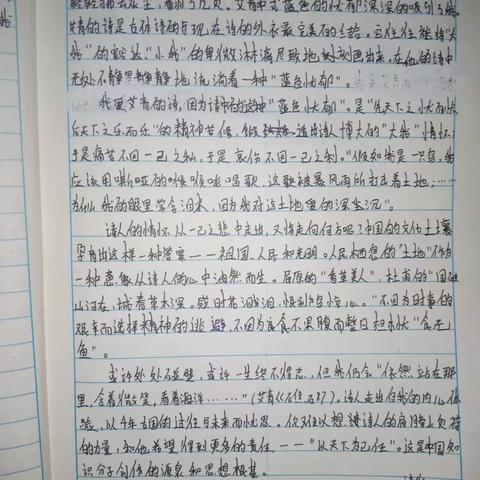 轻轻拂去灰尘，看到了光灵，艾青那"蓝色的忧郁"深深的吸引了我
艾青的诗是古体诗的与现在诗的外衣最完美的结合。它往往能将"大
我"的豁达、"小我"的卑微淋漓尽致地刻画出来。在他的诗中
无处不静静地流淌着一种"蓝色忧郁"。
我爱艾青的诗，因为诗中的这种"蓝色忧郁"，是"先天下之忧而忧
后天下之乐而乐"的精神苦修，诗人博大的"大我"情怀，
于是痛苦不因一己之私，于是哀伤不因一己之利。"假如我是一只鸟，我
应该用嘶哑的喉咙唱歌，这被暴风雨所打击着土地；……
为什么我的眼里常含泪水，因为我对这土地爱的深沉"。
诗人的情怀，从一己之悲中走出，又将走向何方呢？中国的文化土壤
孕育出这样一种答案——祖国、人民和光明。人民栖息的"土地"作为
一种意象从诗人的心中油然而生。屈原的"香草美人"，杜甫的"国破
山河在，城春草木深。感时花溅泪，恨别鸟惊心。"不因为时事的
艰辛而选择精神的逃避，不因为良食不果腹而整日担忧"食无
鱼"。
或许处处碰壁，或许一生终不得志，但我仍会"依然站在那
里，含着微笑，看着海洋……"（艾青《礁石》）。诗人走出自我的内心体
验，以为祖国的过往与未来而忧思。你可以想诗人的肩膀上负荷
的力量，和他希望得到更多的责任——"以天下为己任"。这是中国知
识分子创作的源泉和思想根基。